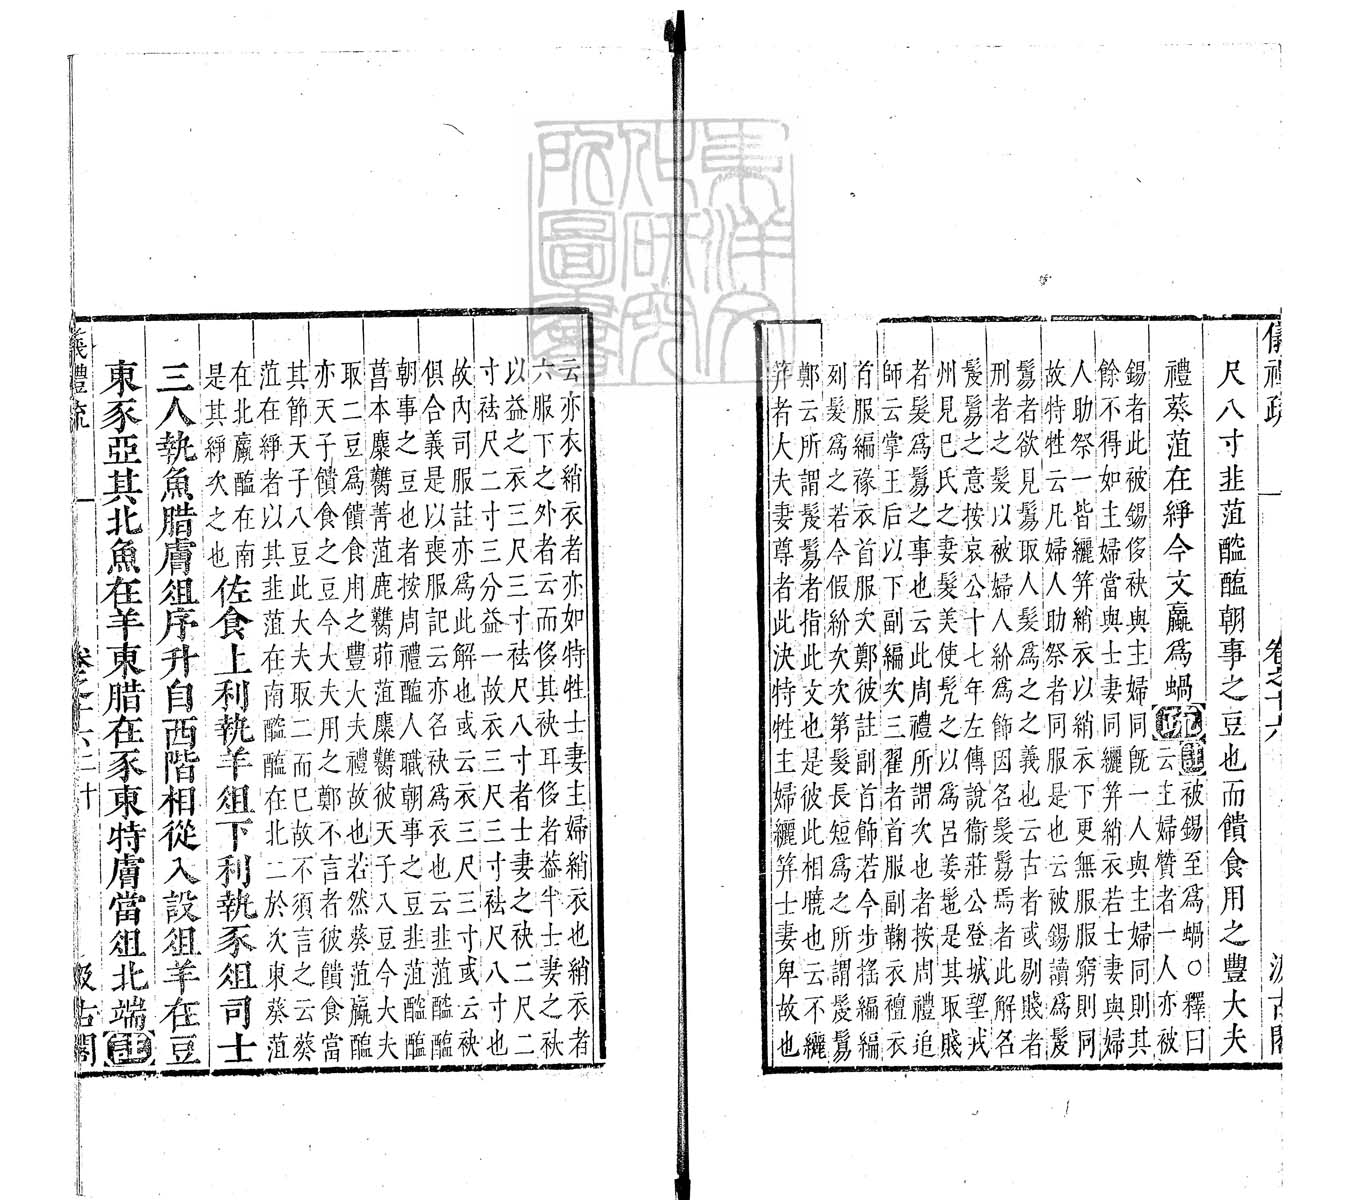 儀禮疏
卷之十六
汲古閣
尺八寸韭菹醓醢朝事之豆也而饋食用之豐大夫
禮葵菹在綪今文蠃爲蝸疏主被錫至爲蝸○釋曰
云主婦贊者一人亦被
錫者此被錫侈袂與主婦同旣一人與主婦同則其
餘不得如主婦當與士妻同纚笄綃衣若士妻與婦
人助祭一皆纚笄綃衣以綃衣下更無服服窮則同
故特牲云凡婦人助祭者同服是也云被錫讀爲髲
鬄者欲見鬄取人髮爲之之義也云古者或剔賤者
刑者之髮以被婦人紒爲飾因名髲鬄焉者此解名
髲鬄之意按哀公十七年左傳說衞莊公登城望戎
州見巳氏之妻髮美使髡之以爲呂姜髢是其取賤
者髮爲鬄之事也云此周禮所謂次也者按周禮追
師云掌王后以下副編次三翟者首服副鞠衣襢衣
首服編褖衣首服次鄭彼註副首飾若今步搖編編
列髮爲之若今假紒次次第髮長短爲之所謂髲鬄
鄭云所謂髲鬄者指此文也是彼此相曉也云不纚
笄者大夫妻尊者此決特牲主婦纚笄士妻卑故也
云亦衣綃衣者亦如特牲士妻主婦綃衣也綃衣者
六服下之外者云而侈其袂耳侈者葢半士妻之袂
以益之衣三尺三寸袪尺八寸者士妻之袂二尺二
寸袪尺二寸三分益一故衣三尺三寸袪尺八寸也
故內司服註亦爲此解也或云衣三尺三寸或云袂
俱合義是以喪服記云亦名袂爲衣也云韭菹醓醢
朝事之豆也者按周禮醢人職朝事之豆韭菹醓醢
菖本麋臡菁菹鹿臡茆菹麋臡彼天子八豆今大夫
取二豆爲饋食用之豐大夫禮故也若然葵菹蠃醢
亦天子饋食之豆今大夫用之鄭不言者彼饋食當
其節天子八豆此大夫取二而巳故不須言之云葵
菹在綪者以其韭菹在南醓醢在北二於次東葵菹
在北蠃醢在南
是其綪次之也
佐食上利執羊俎下利執豕俎司士
三人執魚腊膚俎序升自西階相從入設俎羊在豆
東豕亞其北魚在羊東腊在豕東特膚當俎北端主
儀禮疏
卷之十六
二十
汲古閣
東洋文化研究所圖書